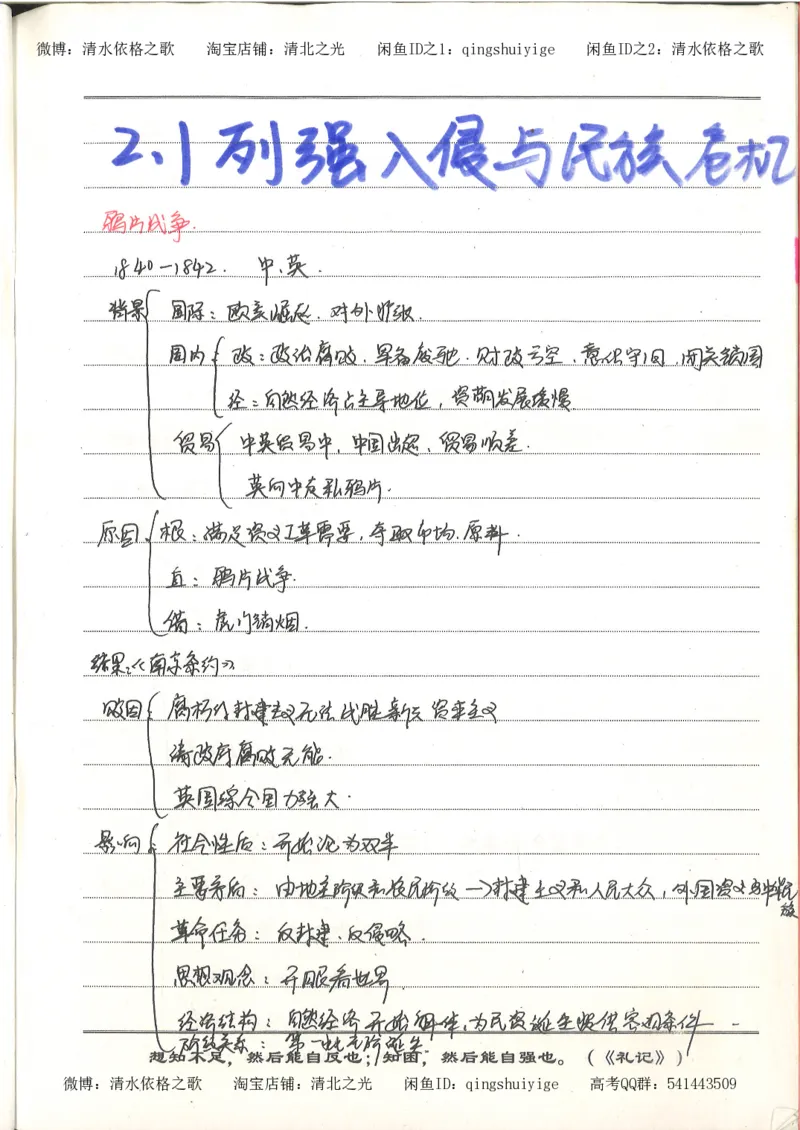 微博：清水依格之歌 淘宝店铺：清北之光 闲鱼ID之1：qingshuiyige 闲鱼ID之2：清水依格之歌
2.1 列强入侵与民族危机
鸦片战争.
1840—1842. 中.英.
背景 国际：欧美崛起. 对外扩张.
国内 政：政治腐败. 军备废弛. 财政亏空. 意识守旧. 闭关锁国
经：自然经济占主导地位，资萌发展缓慢
贸易 中英贸易中，中国出超，贸易顺差.
英向中走私鸦片.
原因 根：满足资义工革需要，夺取市场.原料.
直：鸦片战争.
借：虎门销烟.
结果：《南京条约》
败因 腐朽的封建主义无法战胜新兴资本主义
清政府腐败无能.
英国综合国力强大.
影响 社会性质：开始沦为双半
主要矛盾：由地主阶级和农民阶级→封建主义和人民大众，外国资义与中华民族
革命任务：反封建.反侵略.
思想观念：开眼看世界
经济结构：自然经济开始解体，为民资诞生提供客观条件
阶级关系：第一批无产阶诞生
想知不足，然后能自反也；知困，然后能自强也。（《礼记》）
微博：清水依格之歌 淘宝店铺：清北之光 闲鱼ID：qingshuiyige 高考QQ群：541443509